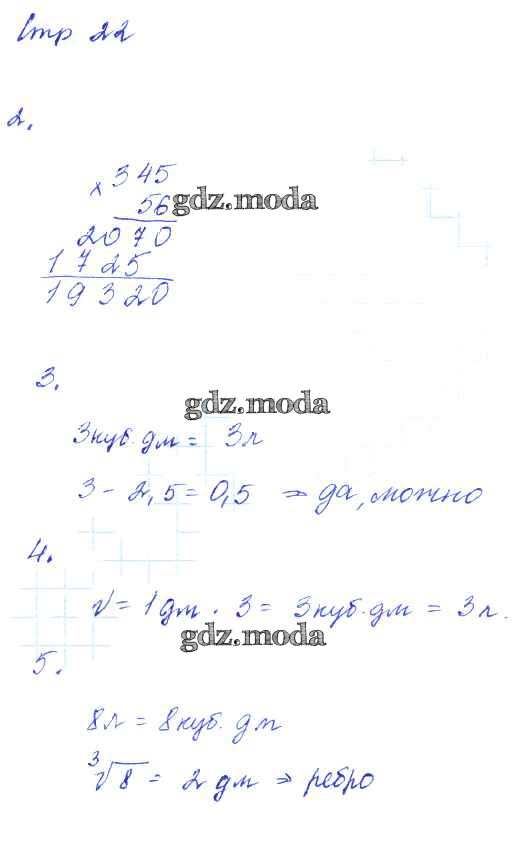 Стр 22
2.
× 345
56
gdz.moda
2070
1725
19320
3.
gdz.moda
3куб.дм = 3л
3 - 2,5 = 0,5 ⇒ да, можно
4.
V = 1дм · 3 = 3куб.дм = 3л.
gdz.moda
5.
8л = 8куб. дм
∛8 = 2 дм ⇒ ребро